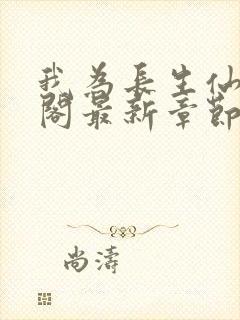 我為長生仙
閣最新章節
尚濤